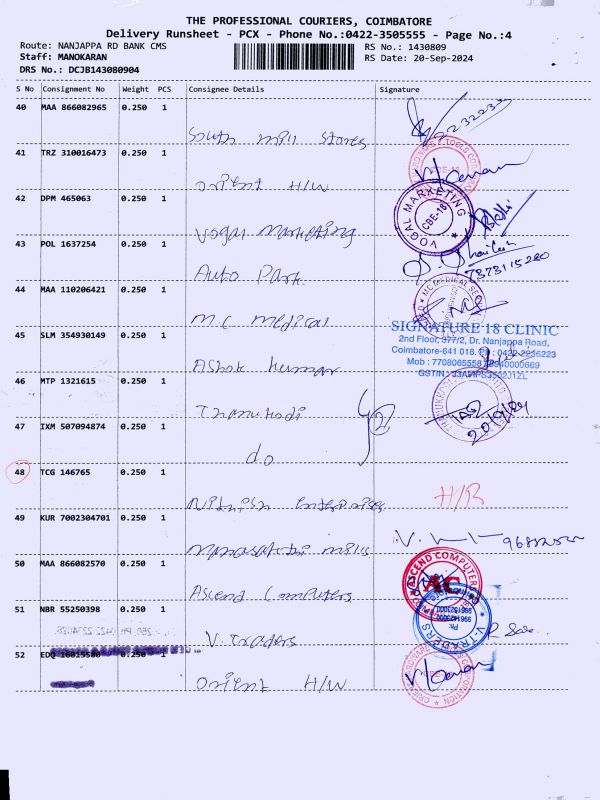 THE PROFESSIONAL COURIERS, COIMBATORE
Delivery Runsheet - PCX - Phone No.:0422-3505555 - Page No.:4
Route: NANJAPPA RD BANK CMS
RS No.: 1430809
Staff: MANOKARAN
RS Date: 20-Sep-2024
DRS No.: DCJB143080904
S No Consignment No Weight PCS Consignee Details Signature
40 MAA 866082965 0.250 1
South mill Stores
41 TRZ 310016473 0.250 1
Orient H/W
42 DPM 465063 0.250 1
VOGAL MARKETING
CBE-18
Vogal Marketing
43 POL 1637254 0.250 1
Auto Park
7373115200
44 MAA 110206421 0.250 1
M.C medical
SIGNATURE 18 CLINIC
2nd Floor, 377/2, Dr. Nanjappa Road,
45 SLM 354930149 0.250 1
Coimbatore-641 018.
Ashok kumar
46 MTP 1321615 0.250 1
20/9/24
47 IXM 507094874 0.250 1
do
48 TCG 146765 0.250 1
H/R
Enterprises
49 KUR 7002304701 0.250 1
mills
50 MAA 866082570 0.250 1
ASCEND COMPUTERS
AC
Ascend Computers
51 NBR 55250398 0.250 1
V-TRADERS
V. Traders
52 EDQ 16015580 0.250 1
Orient H/W